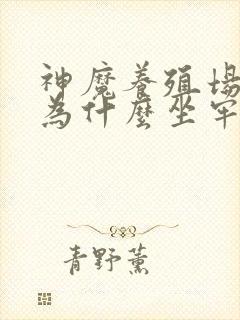 神魔養殖場
為什麼坐牢
青野薰